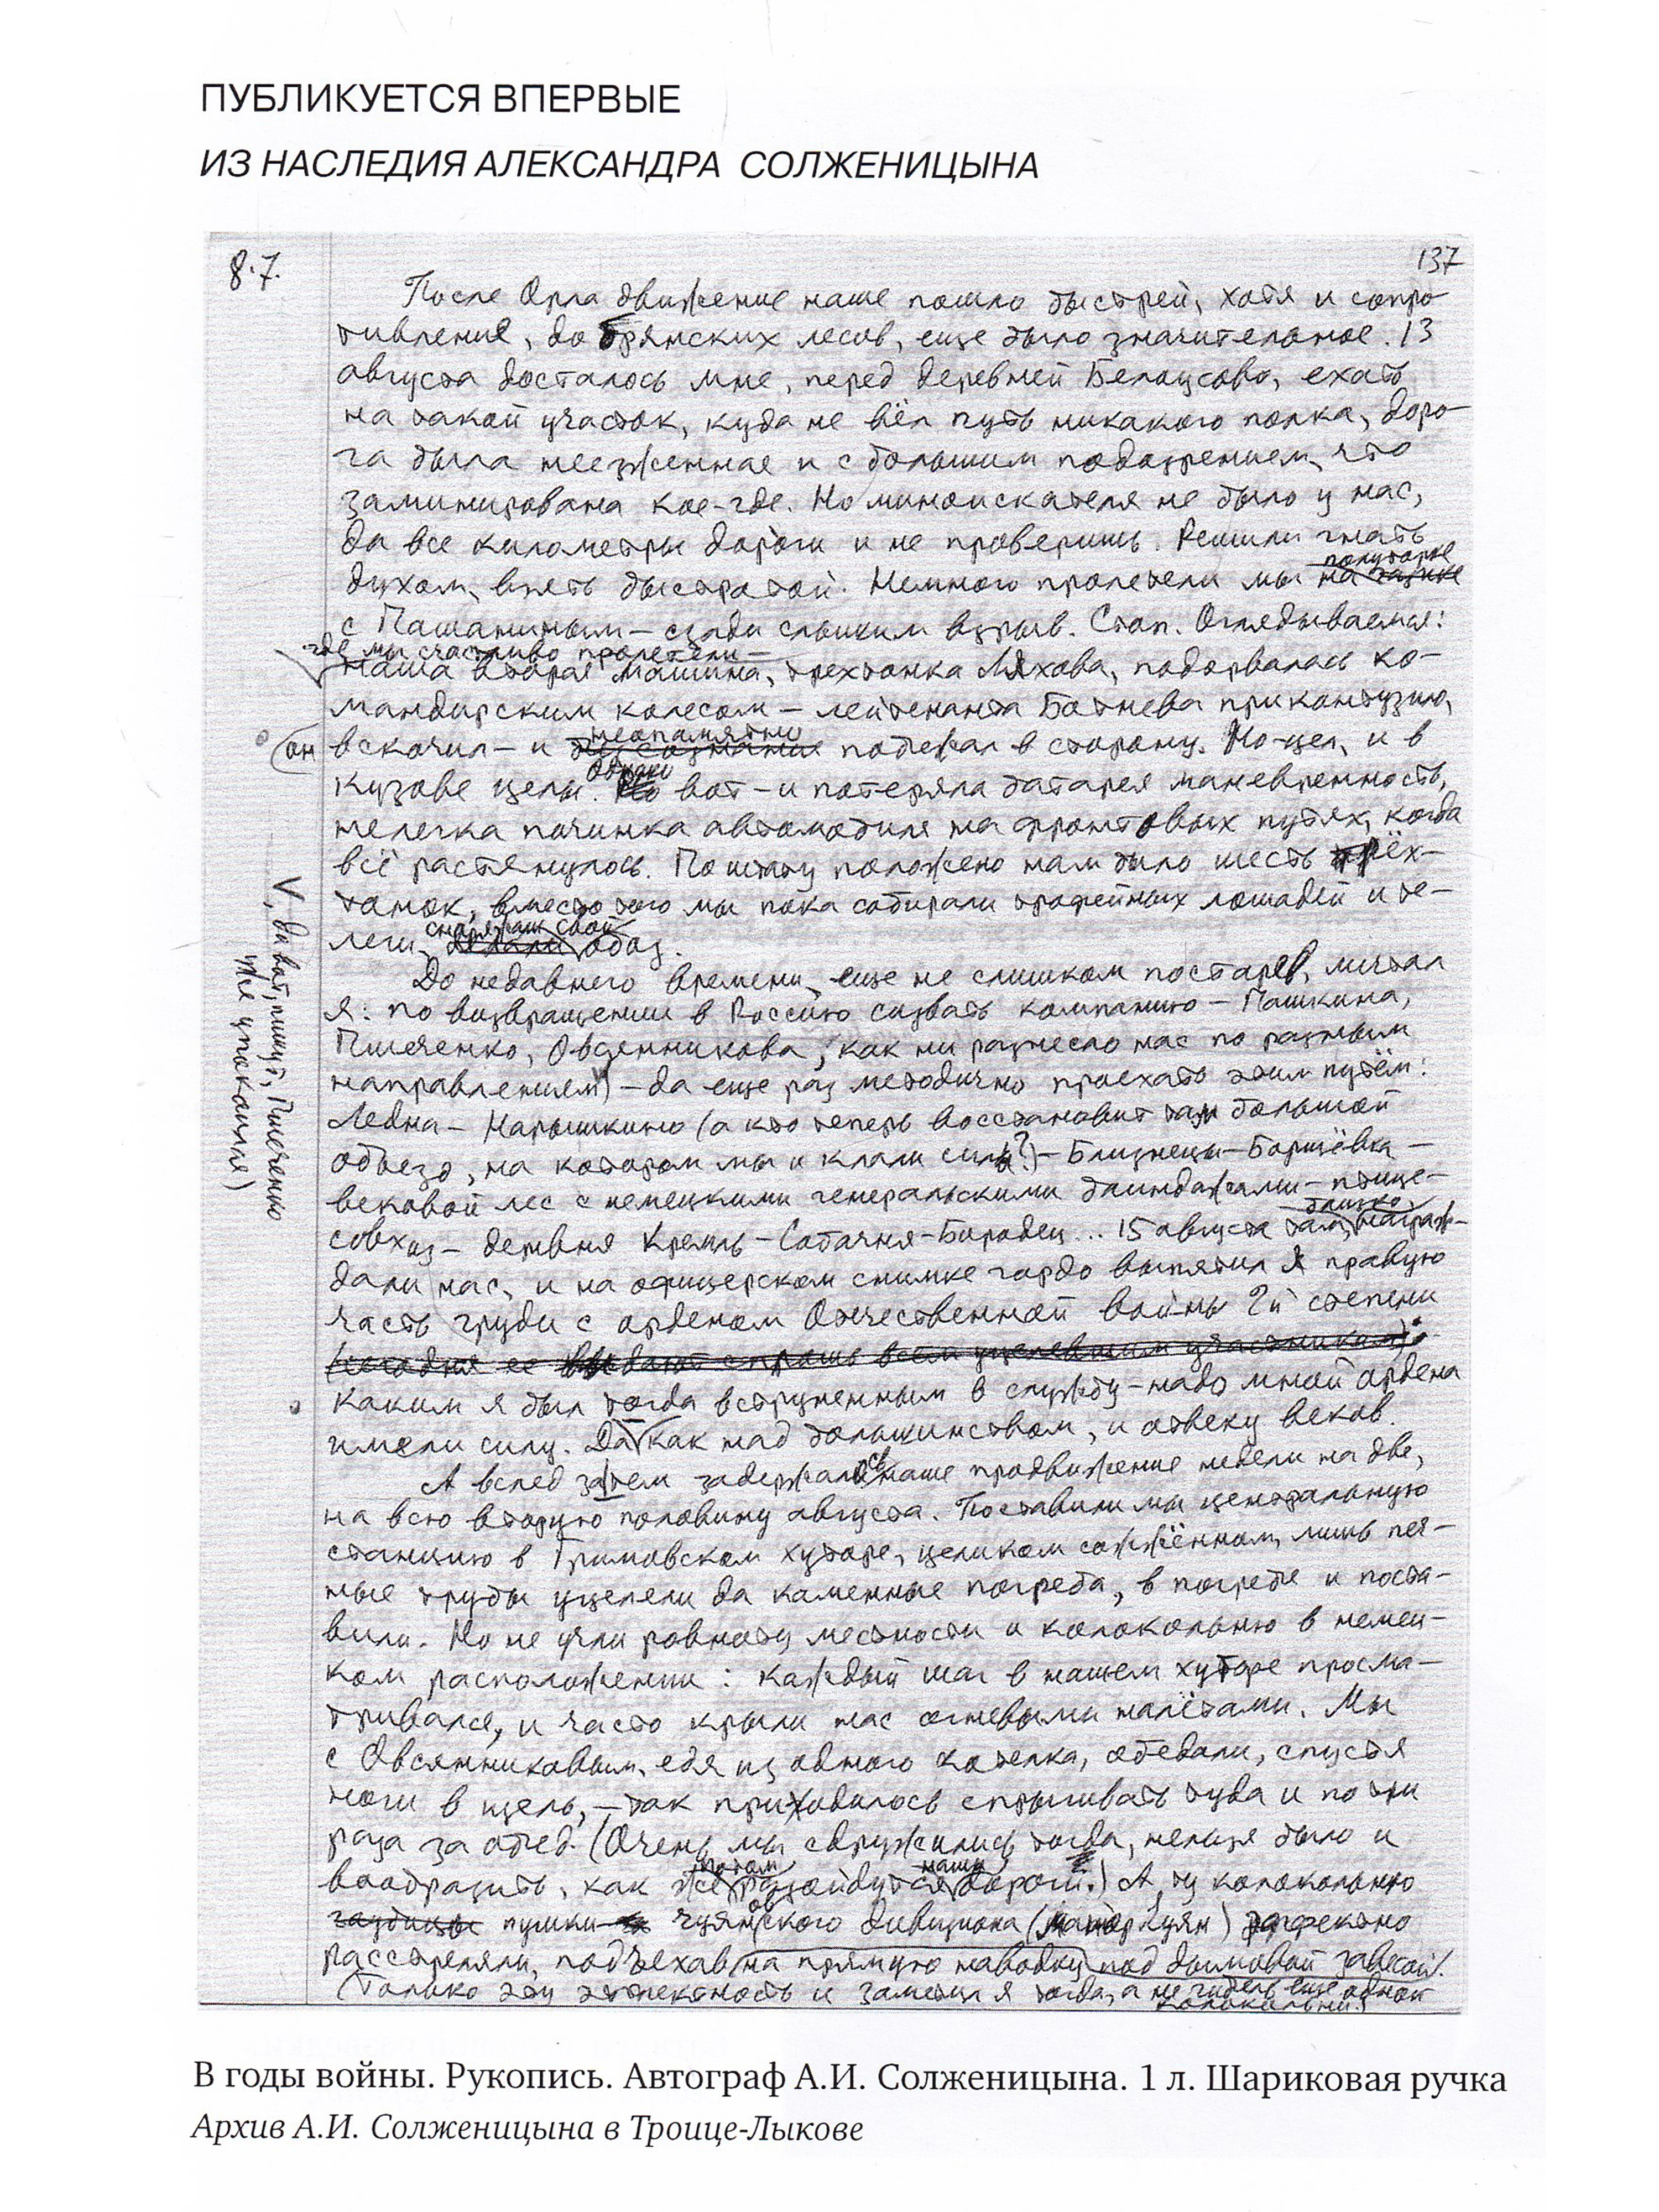 ПУБЛИКУЕТСЯ ВПЕРВЫЕ
ИЗ НАСЛЕДИЯ АЛЕКСАНДРА СОЛЖЕНИЦЫНА
8.7.
137
После Орла движение наше пошло быстрей, хотя и сопро-
тивление, до Брянских лесов, еще было значительное. 13
августа досталось мне, перед деревней Белоусово, ехать
на такой участок, куда не вёл путь никакого полка, доро-
га была неезженная и с большим подозрением, что
заминирована кое-где. Но миноискателя не было у нас,
да все километры дороги и не проверишь. Решили гнать
духом, взять быстротой. Немного пролетели мы полуторке
на газике
с Пашкиным — сзади слышим взрыв. Стоп. Оглядываемся:
где мы счастливо пролетели —
наша вторая машина, трехтонка Ляхова, подорвалась ко-
мандирским колесом — лейтенанта Ботнева приконтузило,
он вскочил — и неопамятно
без сознания побежал в сторону. Но — цел, и в
кузове целы. Однако вот — и потеряла батарея маневренность,
нелегка починка автомобиля на фронтовых путях, когда
всё растянулось. По штату положено нам было шесть трёх-
тонок, вместо того мы пока собирали трофейных лошадей и те-
леги, снаряжали свой
делали обоз.
До недавнего времени, еще не слишком постарев, мечтал
я: по возвращении в Россию созвать компанию — Пашкина,
Пшеченко, Овсянникова, как ни разнесло нас по разным
направлениям) — да еще раз методично проехать этим путём:
V, да вот, пишут, Пшеченко
уже упокоился)
Ледна — Нарышкино (а кто теперь восстановит там большой
объезд, на котором мы и клали силы?) — Близнецы — Борщёвка —
вековой лес с немецкими генеральскими блиндажами — птице-
совхоз — деревня Кремль — Собачня-Бородец... 15 августа близко
там награж-
дали нас, и на офицерском снимке гордо выпятил я правую
часть груди с орденом Отечественной войны 2й степени
(сегодня ее выдают спрашь всем уцелевшим участникам).
Каким я был тогда вструненным в службу — надо мной ордена
имели силу. Да как над большинством, и отвеку веков.
А вслед затем задержалось наше продвижение недели на две,
на всю вторую половину августа. Поставили мы центральную
станцию в Гримовском хуторе, целиком сожжённом, лишь печ-
ные трубы уцелели да каменные погреба, в погребе и поста-
вили. Но не учли ровноту местности и колокольню в немец-
ком расположении: каждый шаг в нашем хуторе просма-
тривался, и часто крыли нас огневыми налётами. Мы
с Овсянниковым, едя из одного котелка, обедали, спустя
ноги в щель, — так приходилось спрыгивать туда и по три
раза за обед. (Очень мы сдружились тогда, нельзя было и
вообразить, как потом
же разойдутся наши
дороги.) А ту колокольню
гаубицы пушки чуянского дивизиона (майор Куян) эффектно
расстреляли, подъехав на прямую наводку под дымовой завесой.
(Только эту эффектность и заметил я тогда, а не гибель еще одной
колокольни.)
В годы войны. Рукопись. Автограф А.И. Солженицына. 1 л. Шариковая ручка
Архив А.И. Солженицына в Троице-Лыкове